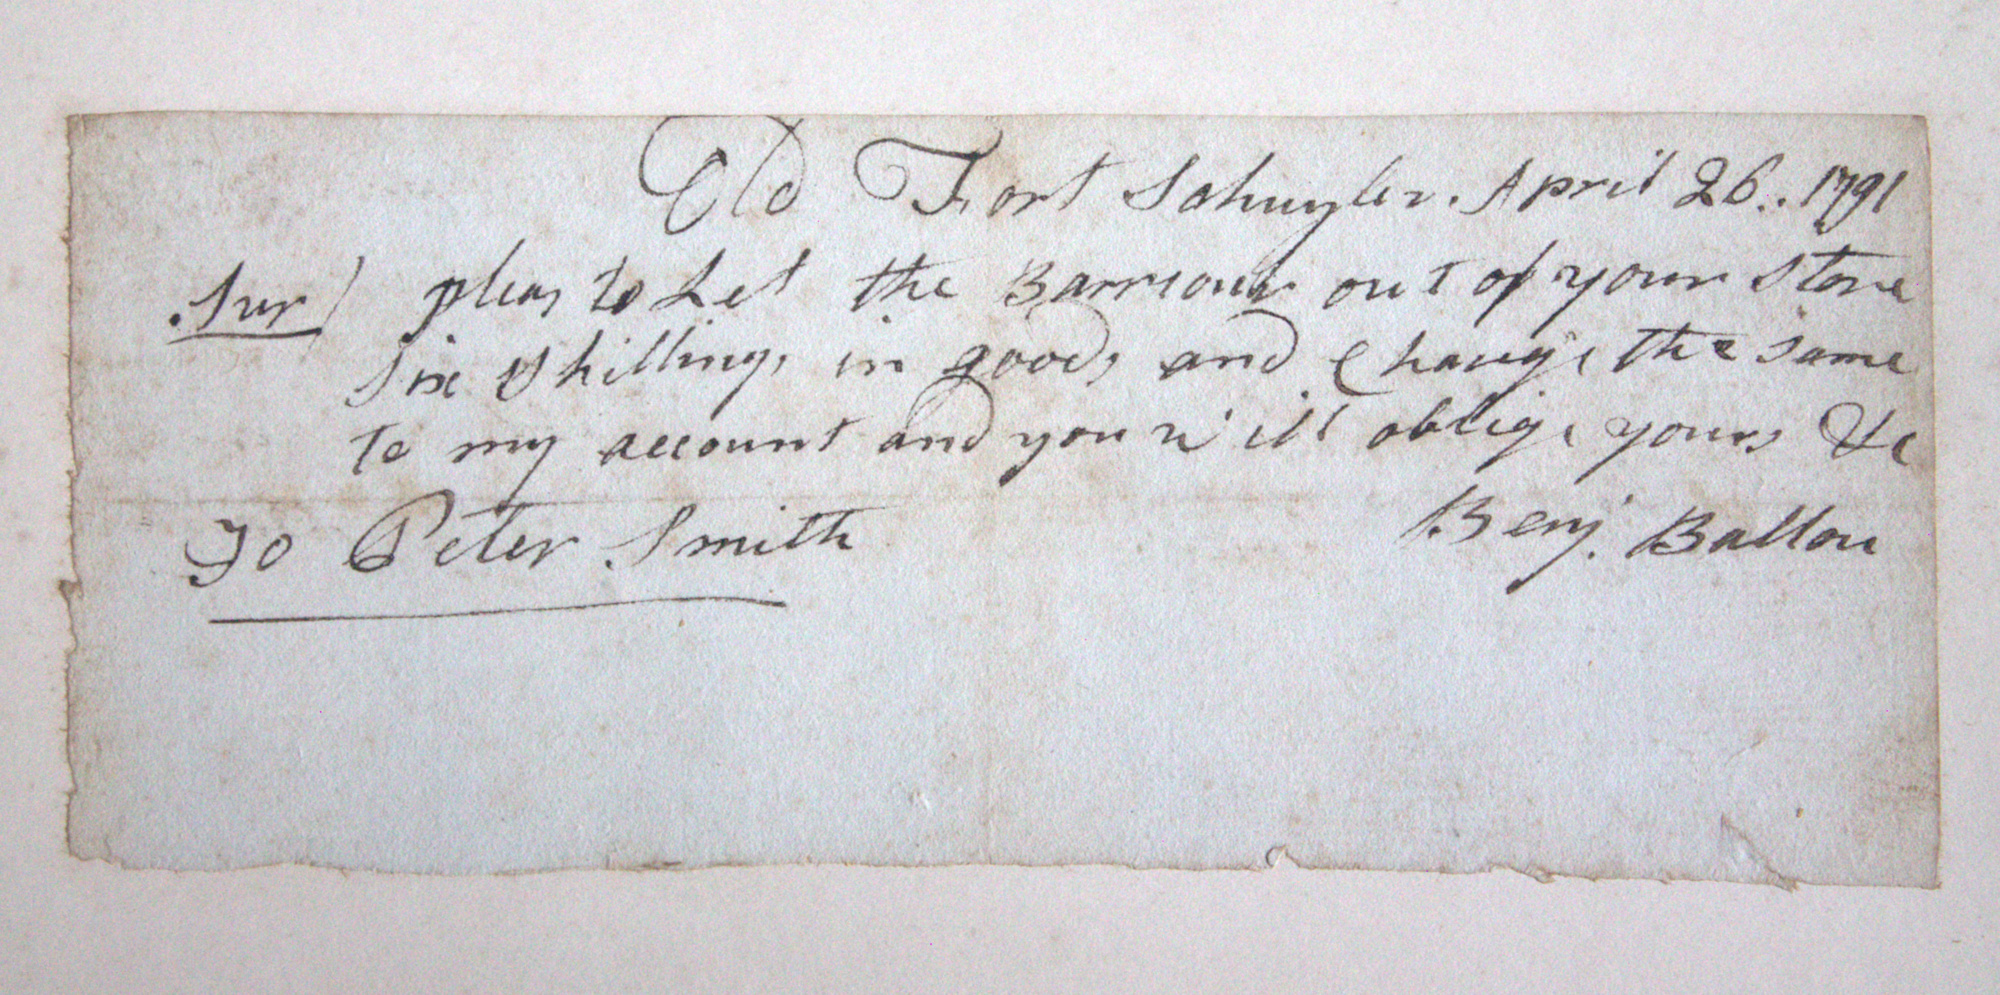 Old Fort Schuyler. April 26.. 1791
Sur) pleas to Let the Barriour out of your Store
Six Shillings in goods and Charge the same
to my account and you will oblige yours &c
To Peter Smith Benj. Ballou